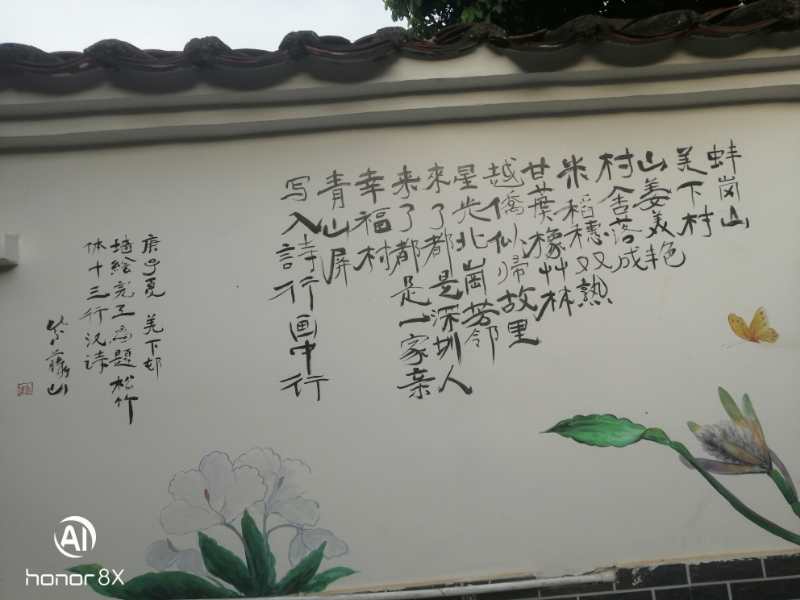 蚌岗山
羌下村
山姜美艳
村舍落成
米稻穗双熟
甘橡艸林
越僑仙归故里
星光北崗芳邻
來了都是深圳人
来了都是一家亲
幸福村
青山屏
写入詩行画中行
庚子夏 羌下邨
墙绘完工为题松竹
体十三行汉诗
紫藤山
AI
honor 8X